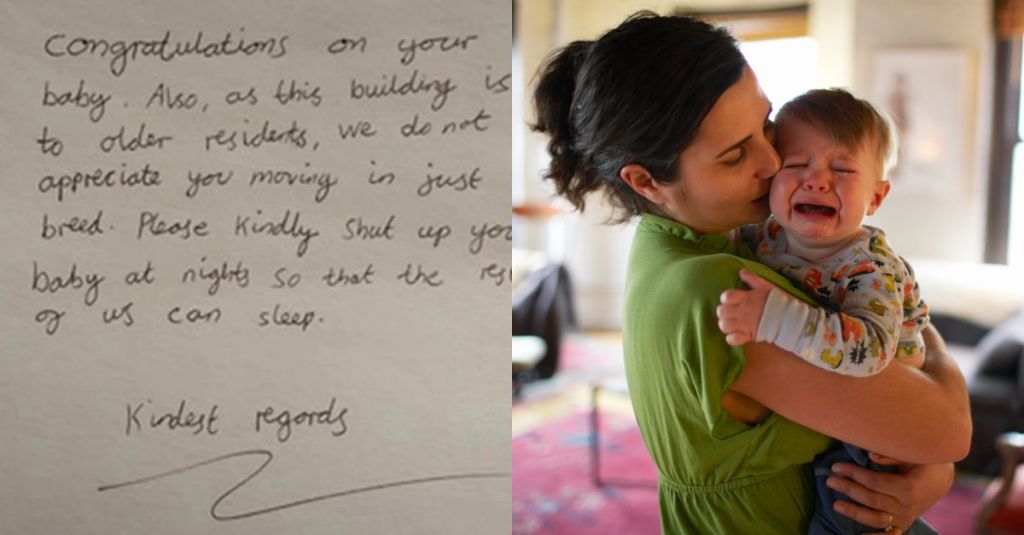 Congratulations on your
baby. Also, as this building is
to older residents, we do not
appreciate you moving in just
breed. Please kindly shut up
baby at nights so that the
of us can sleep.
Kindest regards